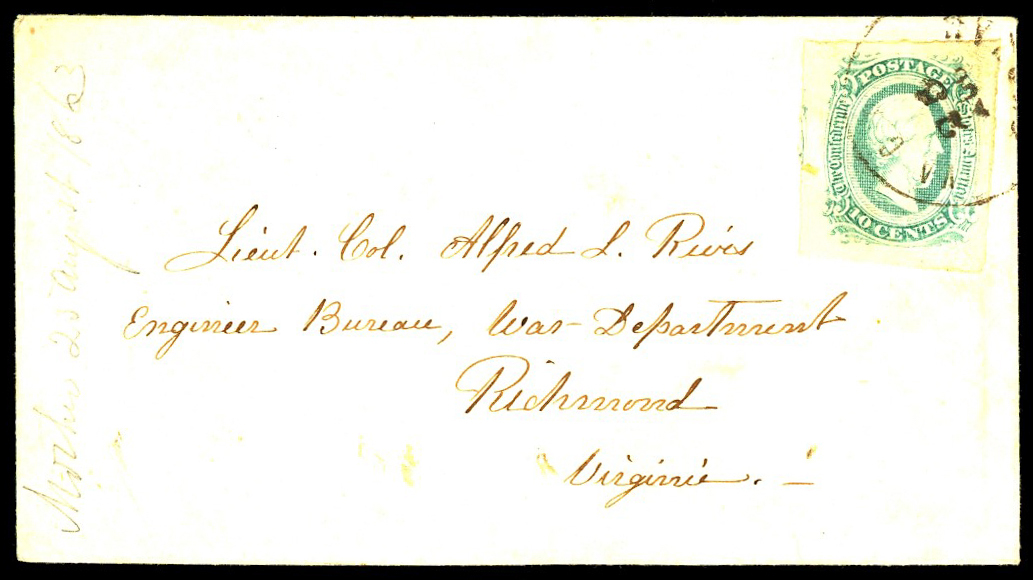 Lieut. Col. Alfred L. Rives
Engineer Bureau, War Department
Richmond
Virginia.
Mother 25 August 1863
POSTAGE
The Confederate
States America
10 CENTS
AUG
25
VA